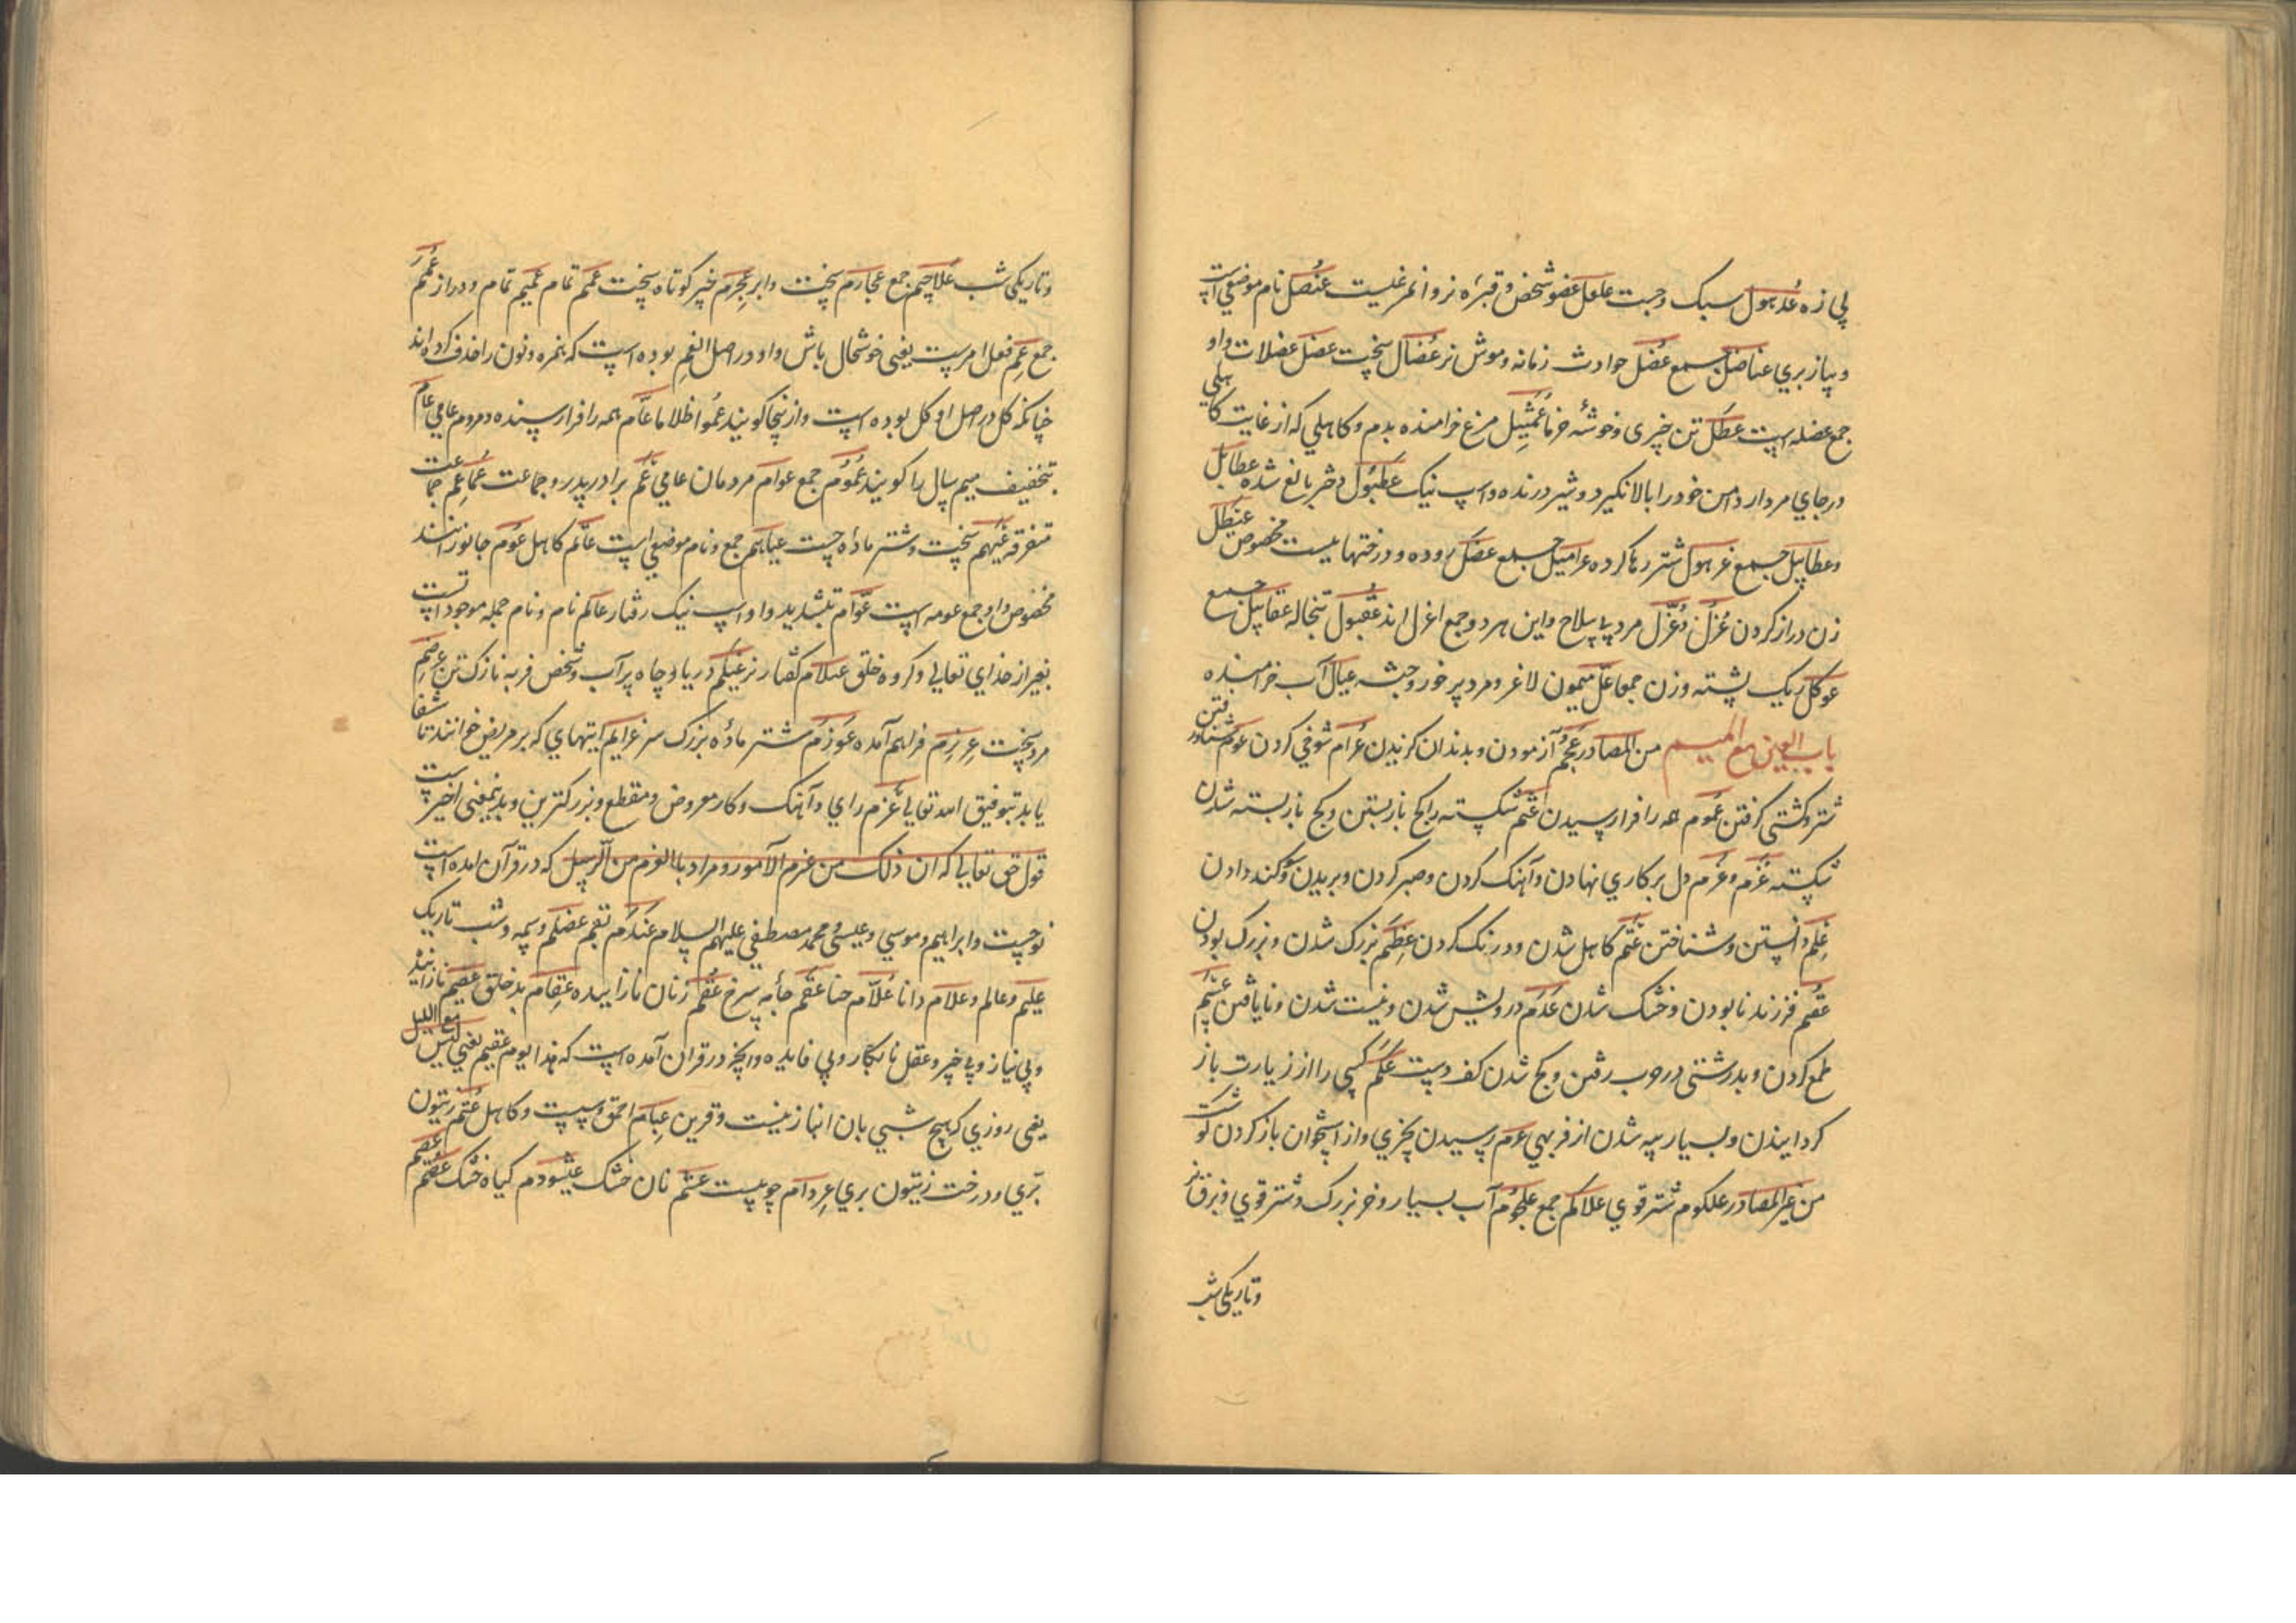 پی زه عُدهول سبک و جست علعل عضو شخص و قبره نر و انمر غلیت عنُصل نام موضعی است
و پیاز بری عناصل جمع عُضل حوادث زمانه و موش نر عُضال سخت عضل عضلات و او
جمع عضله است عطل تن چیزی و خوشهٔ خرما عُمَیثِل مرغ خرامنده بدم و کاهلی که از غایت کاهلی
در جای مردار دامن خود را بالا نگیرد و شیر درنده و اسپ نیک عُطبُول دختر بالغ شده عطابل
و عطابیل جمع عزهول شتر رها کرده عرامیل جمع عصَل روده و درختهاییست مخصوص عَنطل
زن دراز گردن عُزُل و عُزّل مرد بی سلاح و این هر دو جمع اعزل اند عُقبُول تبخاله عقابیل جمع
عوکل ریک پشته و زن حمقا عَلّ میمون لاغر و مرد پیر خورد جثه عیال آب خرامنده
باب العین مع المیم من المصادر عَجم آزمودن و بدندان گزیدن عُرام شوخی کردن عوم شناور رفتن
شتر و کشتی گرفتن عُموم همه را فرا رسیدن عَثم شکسته را کج باز بستن و کج باز بسته شدن
شکسته عَزم و عُزم دل بر کاری نهادن و آهنک کردن و صبر کردن و بریدن و سوکند دادن
عِلم دانستن و شناختن عَتم کاهل شدن و درنگ کردن عِظَم بزرک شدن و بزرک بودن
عُقم فرزند نابودن و خشک شدن عَدَم درویش شدن و نیست شدن و نایافتن عَشَم
طمع کردن و بدرشتی در حرب رفتن و کج شدن کف دست عَکم کسی را از زیارت باز
کردانیدن و بسیار پیه شدن از فربهی عرم رسیدن بچیزی و از استخوان باز کردن گوشت
من غیر المصادر علکوم شتر قوی علاکم جمع علجُوم آب بسیار و خر بزرک و شتر قوی و بزق نر
و تاریکی شب
و تاریکی شب عَلاجیم جمع عجارم سخت و ابر عِجرِم چیز کوتاه سخت عَمَم تمام عَمیم تمام و دراز عُمُم
جمع عِم فعل امرست یعنی خوشحال باش و او در اصل انعِم بوده است که همزه و نون را حذف کرده اند
چنانکه کُل در اصل اوکل بوده است و از ینجا کویند عِمُوا ظلاما عامّ همه را فرا رسنده و مردم عامی عام
بتخفیف میم سال را کویند عُمُوم جمع عوام مردمان عامی عَم برادر پدر و جماعت عَماعِم جماعت
متفرقه عَیهم سخت و شتر مادهٔ جست عیاهم جمع و نام موضعی است عاتم کاهل عُوَم جانوز انند
مخصوص و او جمع عومه است عوّام بتشدید واو اسپ نیک رفتار عالَم نام و نام جمله موجوداتست
بغیر از خدای تعالی و کروه خلق علام کفتار نر عَیلم دریا و چاه پر آب و شخص فربه نازک تن عِرضَم
مرد سخت عِرزِم فراهم آمده عَوزَم شتر مادهٔ بزرک سر عزایم ایتهای که بر مریض خوانند تا شفا
یابد بتوفیق الله تعالی عَزم رای و آهنک و کار معروض و مقطع و بزرکترین و بدینمعنی اخیرست
قول حق تعالی که ان ذلک من عزم الامور و مراد باالعزم من الرسل که در قرآن امده است
نوحست و ابراهیم و موسی و عیسی و محمد مصطفی علیهم السلام عَندَم بقم عِضلم وسمه و شب تاریک
علیم و عالم و علام دانا عُلّام حنا عَقم جامهٔ سرخ عُقُم زنان نازاینده عَقام بد خلق عَقیم نازاینده
و بی نیاز و بی خیر و عقل نابکار و بی فایده و انچه در قران آمده است که هذا یوم عقیم یعنی لیس مع اللیل
یعنی روزی که هیچ شبی بان انباز نیست و قرین عَبام احمق و سست و کاهل عُتُم زیتون
بّری و درخت زیتون بری عِردام چوبیست عَشم نان خشک عیشُودم کیاه خشک عَصم